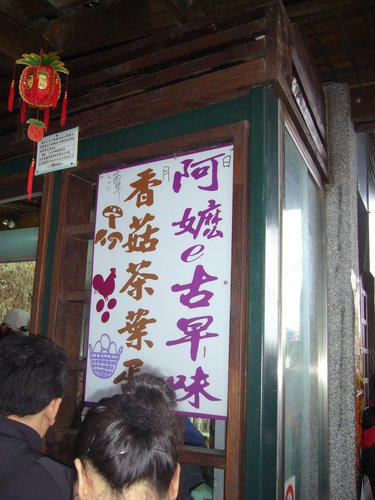 阿嬤e古早味
香菇茶葉蛋
日
月
潭